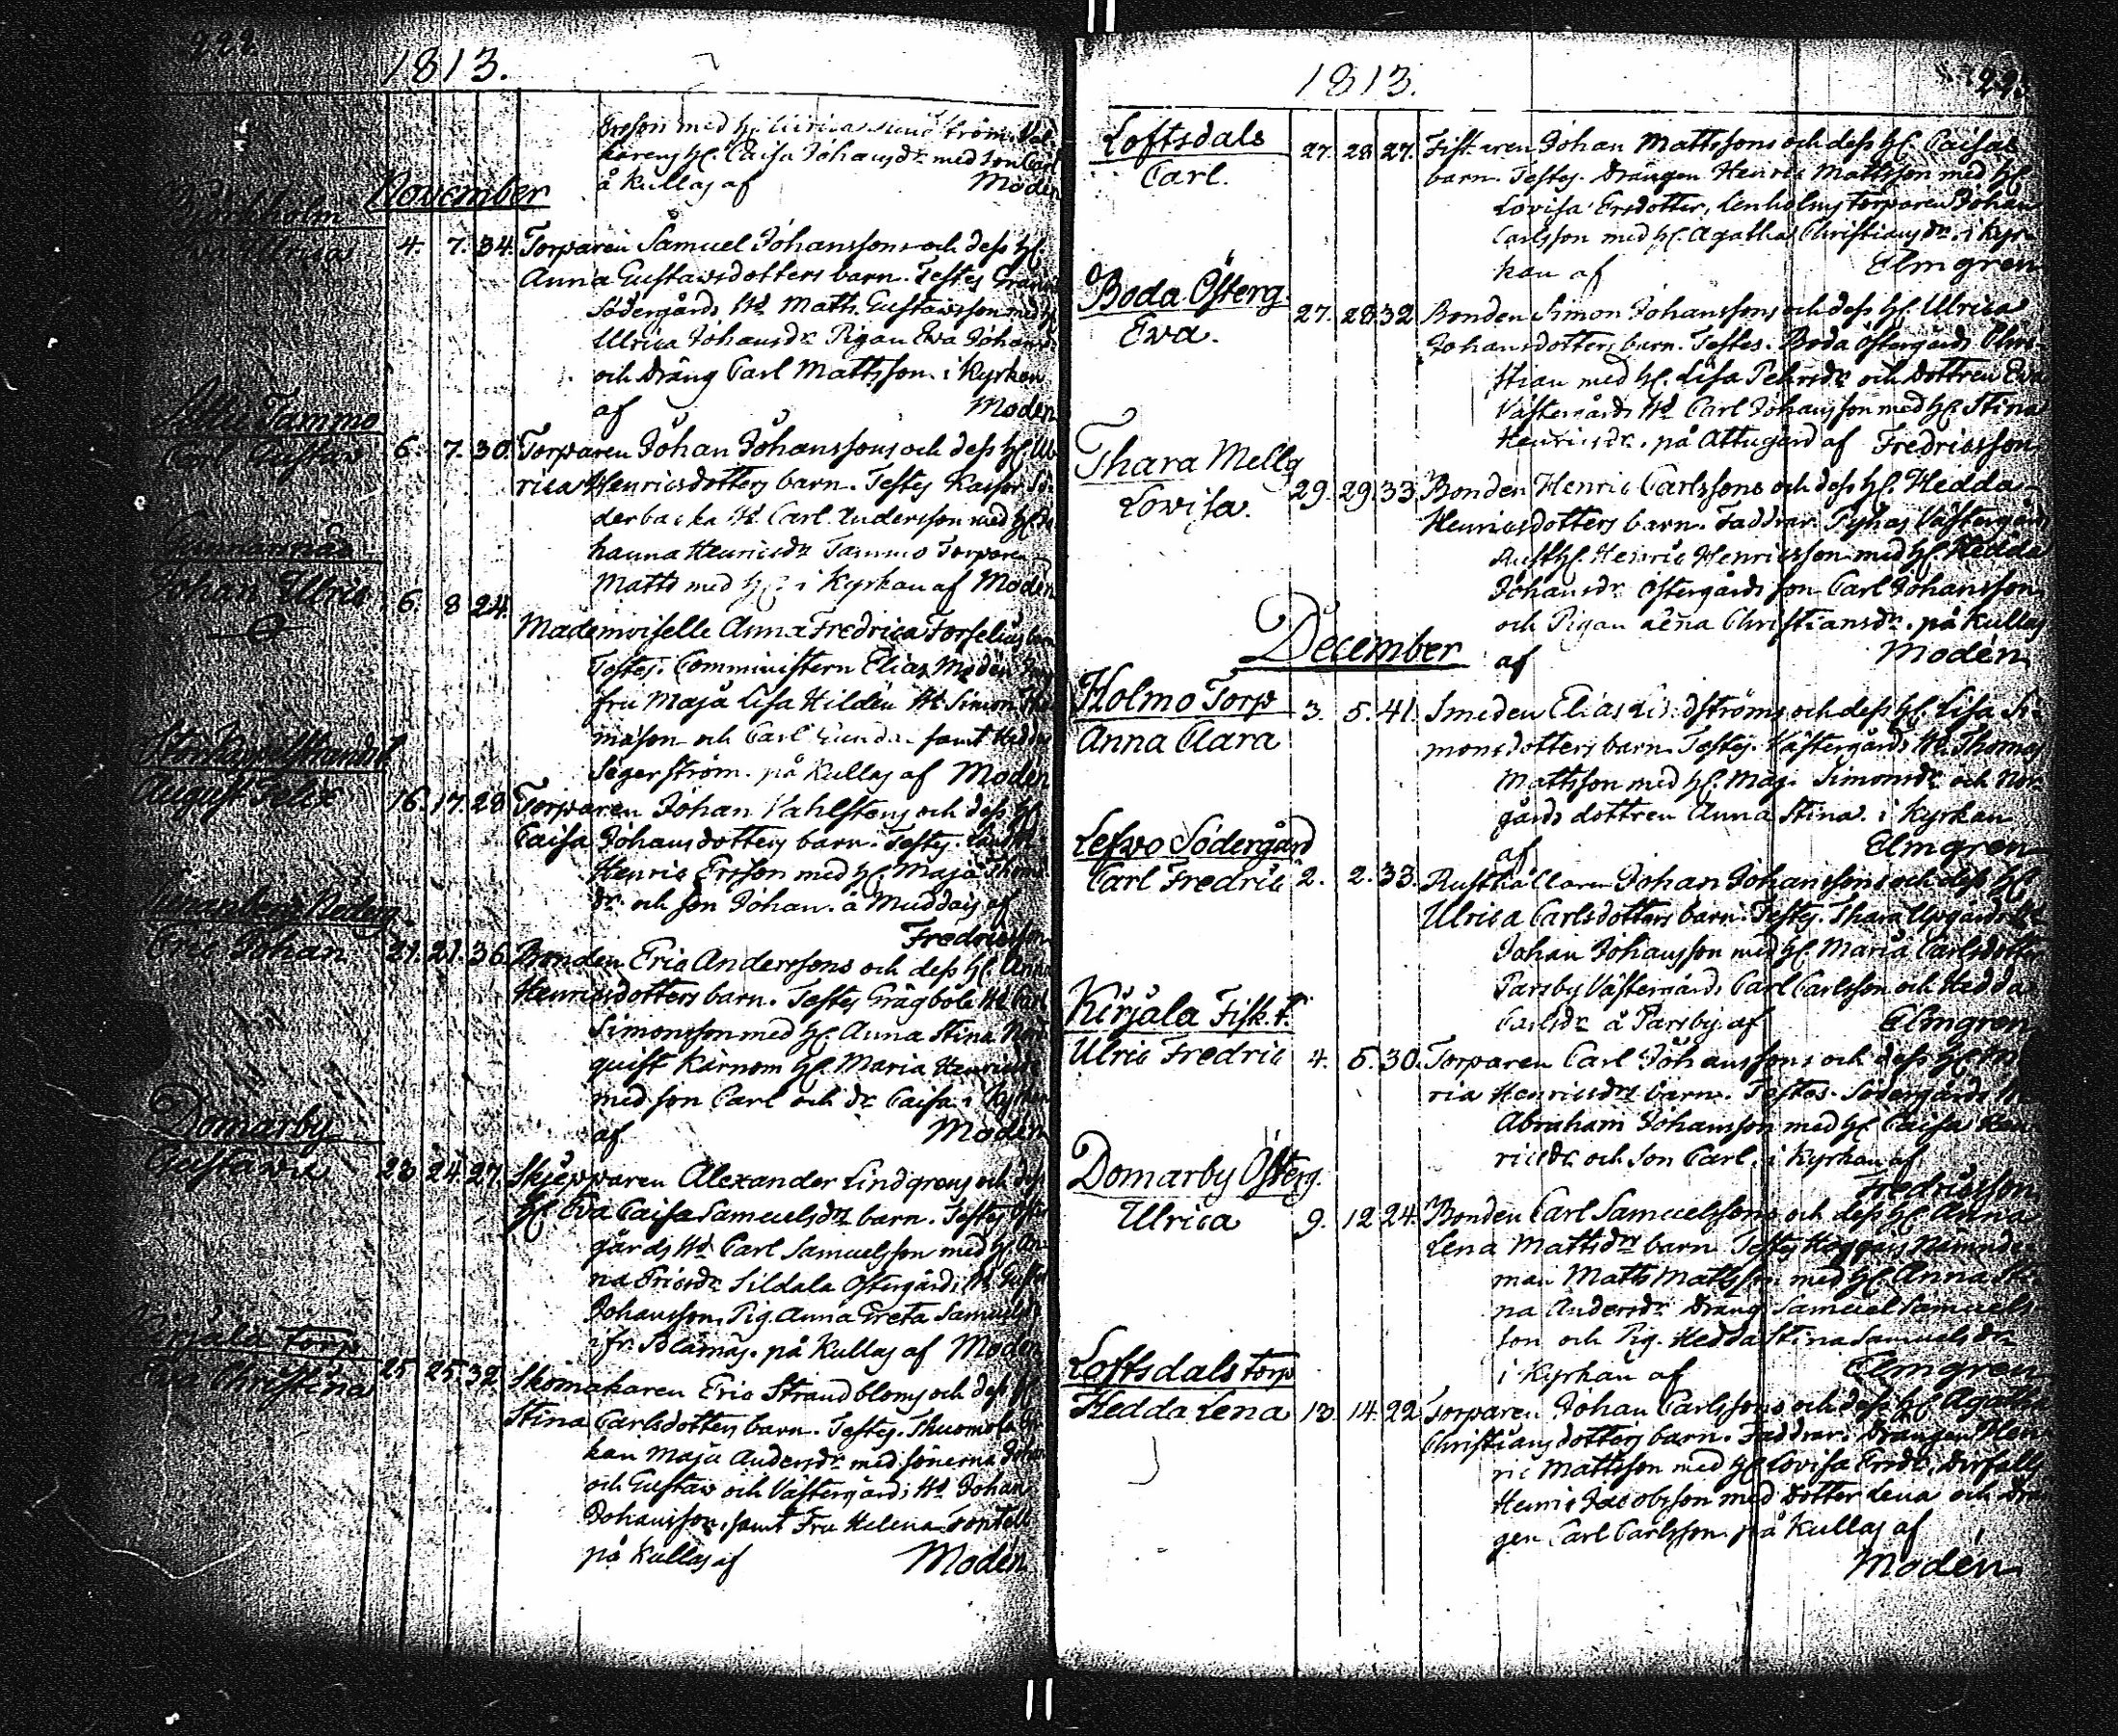 222
1813.
Ersson med H. Ulrica
karens H. Caisa Johansdr med son Carl
å Kullas af Modén
November
Björkholm
Eva Ulrica 4. 7. 34. Torparen Samuel Johanssons och dess H.
Anna Gustavsdotters barn. Testes
Södergårds Hd Matts Gustavsson med H.
Ulrica Johansdr Pigan Eva Johansdr
och Dräng Carl Mattsson. i Kyrkan
af Modén
Tammo
Carl Gustav 6. 7. 30. Torparen Johan Johanssons och dess H. Ul-
rica Henricsdotters barn. Testes Kasor Sö-
derbacka Hd Carl Andersson med H. Jo-
hanna Henricsdr Tammo Torparen
Matts med H. i Kyrkan af Modén
Johan Ulric 6. 8 24.
Mademoiselle Anna Fredrica Forselius barn
Testes. Comministern Elias Modén
fru Maja Lisa Hildén Hd Simon Tho-
masson och Carl samt Hedda
Segerström. på Kullas af Modén
August Felix 16. 17. 28 Torparen Johan Vahlstens och dess H.
Caisa Johansdotters barn. Testes.
Henric Ersson med H. Maja Thoms
dr och son Johan. å Muddais af
Fredricsson
Noderg.
Eric Johan 21. 21. 36. Bonden Eric Anderssons och dess H. Anna
Henricsdotters barn. Testes Grägböle Hd Carl
Simonsson med H. Anna Stina Nord-
quist Kärnom H. Maria Henricsdr
med son Carl och dr Caisa. i Kyrkan
af Modén
Domarby
Gustava 23 24. 27. Skepparen Alexander Lindgrens och dess
H. Eva Caisa Samuelsdrs barn. Testes Öster
gårds Hd Carl Samuelsson med H. An-
na Ericsdr Sildala Östergårds Hd Gustav
Johansson, Pig. Anna Greta Samuelsdr
ifr. på Kullas af Modén
Kirjala Torp
Eva Christina 25 25. 32 Skomakaren Eric Strandbloms och dess H.
Stina Carlsdotters barn. Testes.
kan Maja Andersdr med sönerna Johan
och Gustav och Västergårds Hd Johan
Johansson, samt Fru Helena Fontell
på Kullas af Modén
1813.
Loftsdals
Carl. 27. 28 27. Fiskaren Johan Mattssons och dess H. Caisas
barn. Testes. Drängen Henric Mattsson med H.
Lovisa Ersdotter, Lenholms torparen Johan
Carlsson med H. Agatha Christiansdr. i Kyr-
kan af Elmgren
Boda Österg.
Eva. 27. 28 32 Bonden Simon Johanssons och dess H. Ulrica
Johansdotters barn. Testes. Boda Östergårds Chri-
stian med H. Lisa Pehrsdr och Dottren Eva
Västergårds Hd Carl Johansson med H. Stina
Henricsdr. på Attugård af Fredricsson
Thara Mellg
Lovisa. 29. 29. 33. Bonden Henric Carlssons och dess H. Hedda
Henricsdotters barn. Faddrar. Pyhas Västergårds
RustH. Henric Henricsson med H. Hedda
Johansdr Östergårds son Carl Johansson
och Pigan Lena Christiansdr. på Kullas
af Modén
December
Holmo Torp
Anna Clara 3. 5. 41. Smeden Elias Lindströms och dess H. Lisa Si-
monsdotters barn. Testes. Västergårds Hd Thomas
Mattsson med H. Maja Simonsdr och Nor-
gårds dottren Anna Stina. i Kyrkan
af Elmgren
Lefvo Södergård
Carl Fredric 2. 2. 33. Rusthållaren Johan Johanssons och dess H.
Ulrica Carlsdotters barn. Testes. Thara Uppgårds Hd
Johan Johansson med H. Maria Carlsdotter
Parsby Västergårds Carl Carlsson och Hedda
Carlsdr å Parsby af Elmgren
Kirjala Fisk.t.
Ulric Fredric 4. 5. 30. Torparen Carl Johanssons och dess H. Ma-
ria Henricsdrs barn. Testes. Södergårds Hd
Abraham Johansson med H. Caisa Hen-
ricsdr och Son Carl. i Kyrkan af
Fredricsson
Domarby Österg.
Ulrica 9. 12 24. Bonden Carl Samuelssons och dess H. Anna
Lena Mattsdrs barn Testes Nämnde-
man Matts Mattsson med H. Anna Sti-
na Andersdr Dräng Samuel Samuels-
son och Pig. Hedda Stina Samuelsdr
i Kyrkan af Elmgren
Loftsdals torp
Hedda Lena 13. 14. 22 Torparen Johan Carlssons och dess H. Agatha
Christiansdotters barn. Faddrar. Drängen Hen-
ric Mattsson med H. Lovisa Ersdr,
Henric Jacobsson med dotter Lena och Drän-
gen Carl Carlsson på Kullas af
Modén